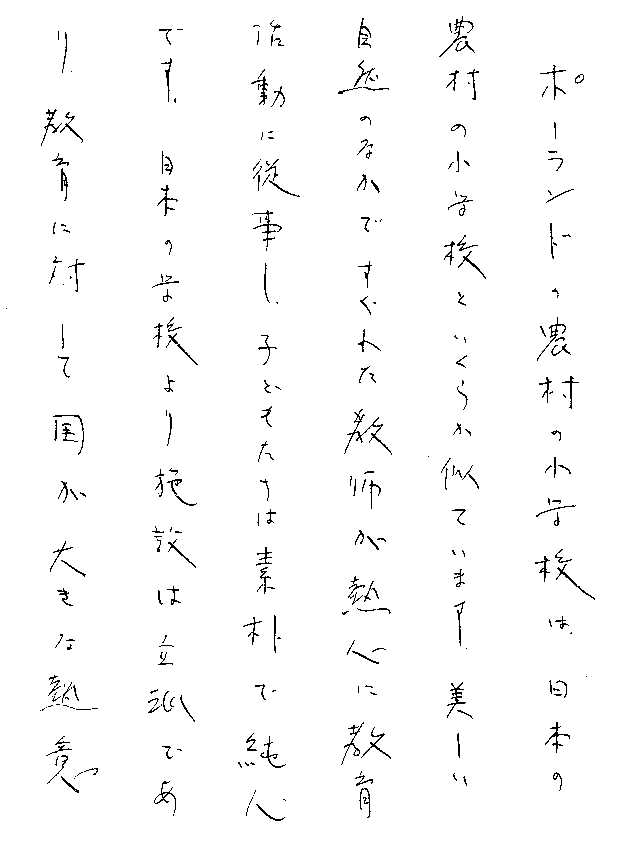 ポーランドの農村の小学校は、日本の
農村の小学校といくらか似ています。美しい
自然のなかですぐれた教師が熱心に教育
活動に従事し、子どもたちは素朴で純心
です。日本の学校より施設は立派であ
り、教育に対して国が大きな熱意